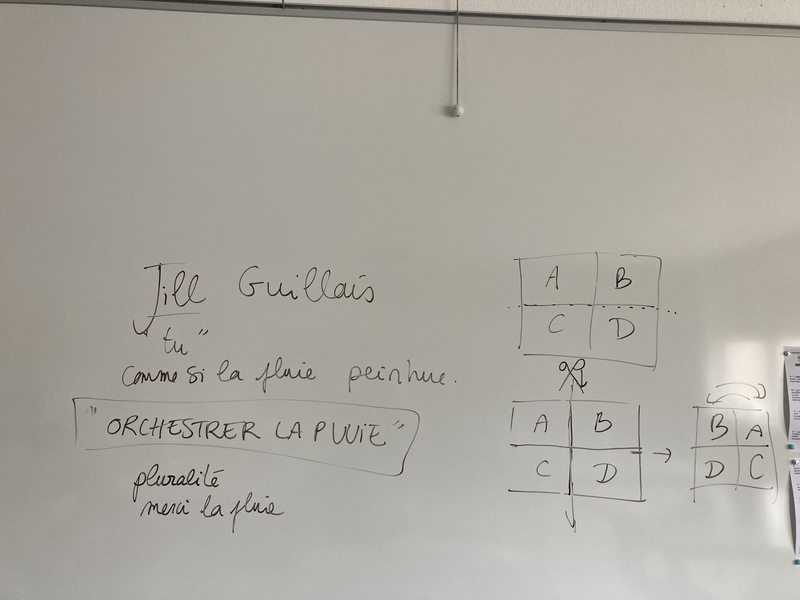 Jill Guillais
tu"
comme si la pluie peinture.
"ORCHESTRER LA PLUIE"
pluralité
merci la pluie
A B
C D
A B
C D
→
B A
D C